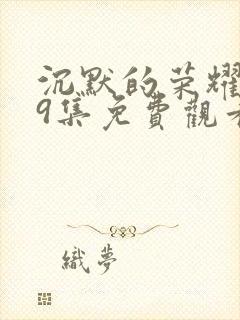 沉默的荣耀
9集免費觀看
織夢